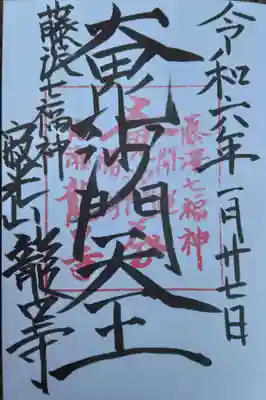 令和六年一月廿七日
大毘沙門天王
藤沢七福神
寂光山 龍口寺
藤澤七福神